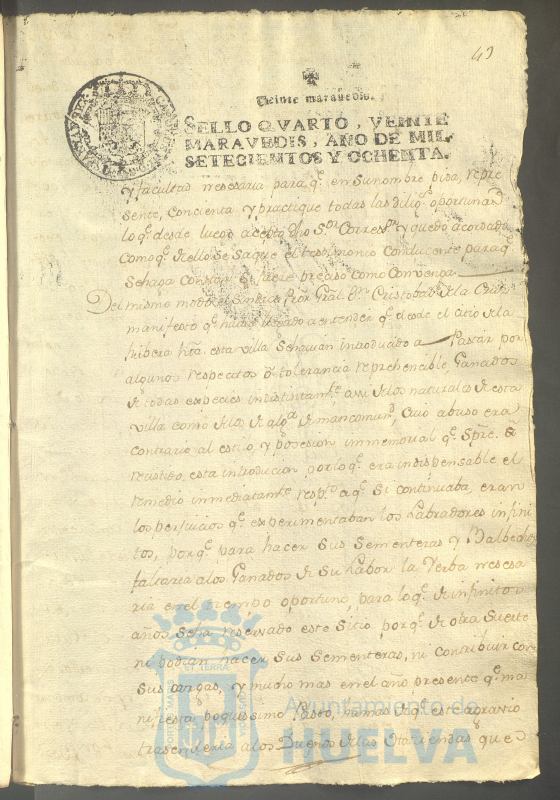 43
Veinte maravedis.
SELLO QVARTO, VEINTE
MARAVEDIS, AÑO DE MIL
SETECIENTOS Y OCHENTA.
y facultad nesesaria para q.e en su nombre pida, repre
sente, Concienta y practique todas las dilig.s oportunas
lo q.e desde luego acepto dho S.or Corres.r y quedo acordado
Como q.e de ello se saque el testimonio Conducente para q.e
Sehaga Constar q.e fuere presiso como Convenga
Del mismo modo el Sindico Pror Gral D.n Cristobal de la Cueva
manifesto q.e havia llegado a entender q.e desde el citio de la
Ribera hta. esta villa Sehavian introducido a Pastar por
algunos respectos o tolerancia reprehencible Ganados
de todas especies indistintam.te assi de los naturales de esta
villa como de los de mancomun.d, cuio abuso era
contrario al estilo, y posesion immemorial q.e Spre.
resistido esta introducion por lo q.e era indispensable el
remedio inmediatam.te resp.to a q.e si continuaba, eran
los perjuicios q.e experimentaban los Labradores infini
tos, porq.e para hacer sus sementeras y Balbechos
faltaria a los Ganados de su Labor la Yerba nesesa
ria en el tiempo oportuno, para lo q.e de infinitos
años Seha reservado este Sitio, porq.e de otra Suerte
ni podian hacer Sus Sementeras, ni contribuir con
Sus cargas, y mucho mas en el año presente q.e ma
nifiesta poquissimo Pasto, a mas de q.e este agravio
trasenderia a los Dueños de las que
ET TERRA
Ayuntamiento de
HUELVA